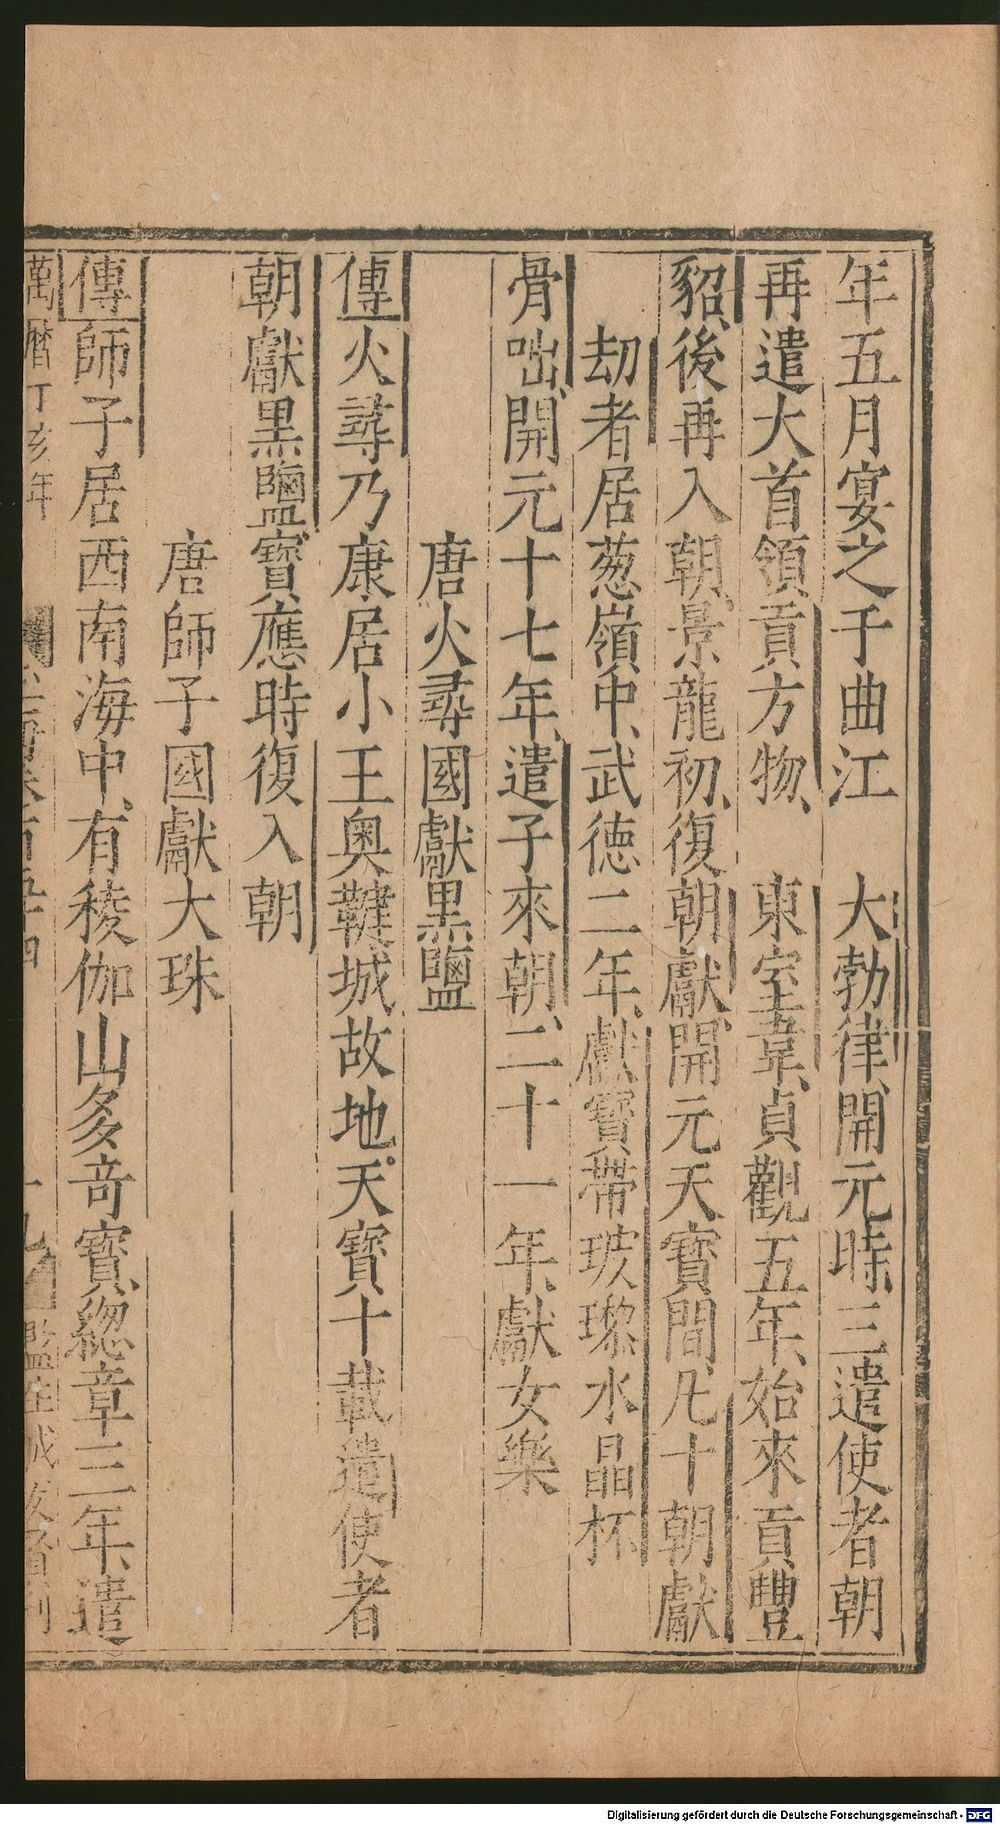 年五月宴之于曲江　大勃律、開元時、三遣使者朝
再遣大首領貢方物、　東室韋、貞觀五年、始來貢豐
貂、後再入朝、景龍初、復朝獻、開元天寶間、凡十朝獻
劫者居葱嶺中、武德二年、獻寶帶玻瓈水晶杯
骨咄、開元十七年、遣子來朝、二十一年、獻女樂
唐火尋國獻黑鹽
傳火蕁乃康居小王奧鞬城故地。天寶十載遣使者
朝獻黑鹽、寶應時復入朝
唐師子國獻大珠
傳師子居西南海中、有稜伽山多竒寶、緫章三年、遣
萬曆丁亥年
十九
Digitalisierung gefördert durch die Deutsche Forschungsgemeinschaft - DFG